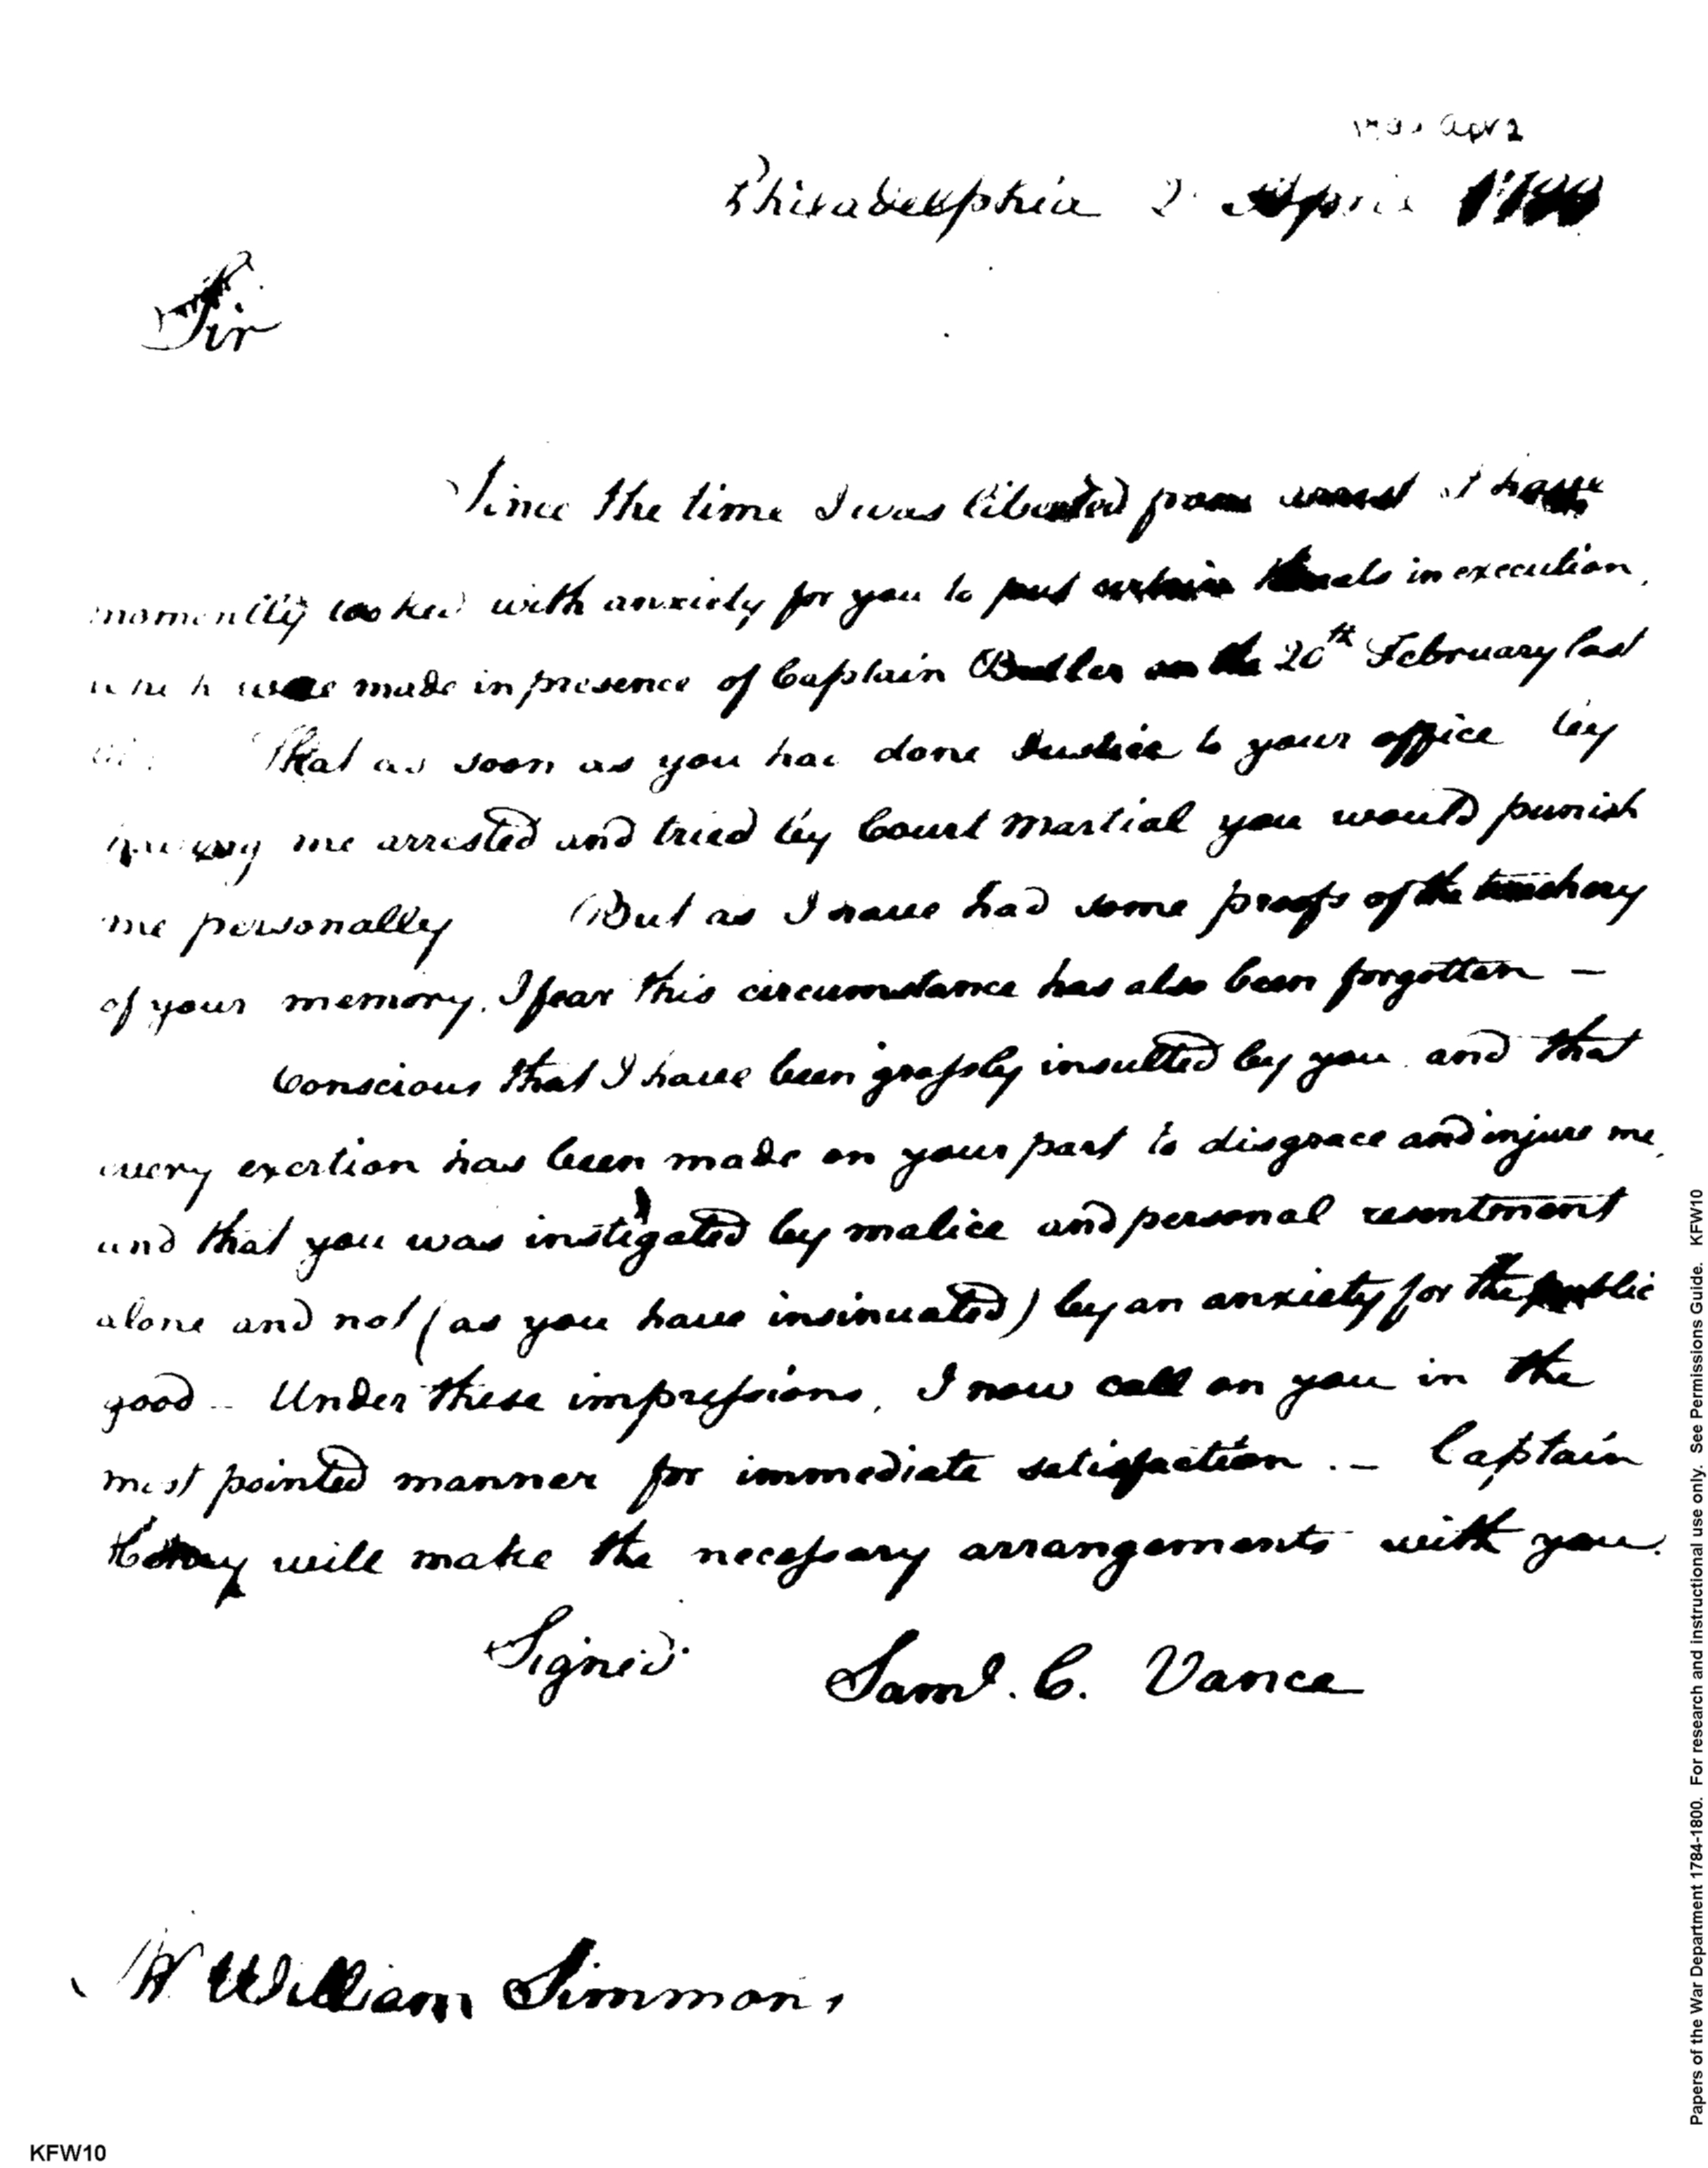 Apr 2
Philadelphia 2 April
Sir
Since the time I was liberated from arrest I have
momently looked with anxiety for you to put certain threats in execution,
which were made in presence of Captain Butler on the 20th February last
That as soon as you had done Justice to your office by
having me arrested and tried by Court Martial you would punish
me personally But as I have had some proofs of the treachery
of your memory. I fear this circumstance has also been forgotten —
Conscious that I have been grossly insulted by you and that
every exertion has been made on your part to disgrace and injure me,
and that you was instigated by malice and personal resentment
alone and not (as you have insinuated) by an anxiety for the public
good — Under these impressions, I now call on you in the
most pointed manner for immediate satisfaction. — Captain
will make the necessary arrangements with you.
Signed Saml. C. Vance
Mr William Simmons
Papers of the War Department 1784-1800. For research and instructional use only. See Permissions Guide. KFW10
KFW10